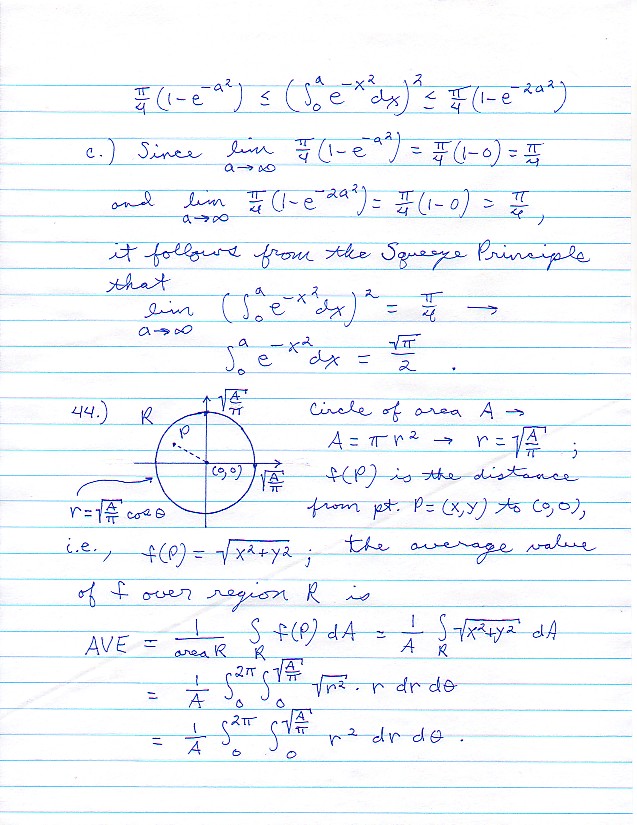 π/4 (1-e^{-a²}) ≤ (∫₀^a e^{-x²} dx)² ≤ π/4 (1-e^{-2a²})
c.) Since lim_{a→∞} π/4 (1-e^{-a²}) = π/4 (1-0) = π/4
and lim_{a→∞} π/4 (1-e^{-2a²}) = π/4 (1-0) = π/4,
it follows from the Squeeze Principle
that
lim_{a→∞} (∫₀^a e^{-x²} dx)² = π/4 →
∫₀^a e^{-x²} dx = √π/2 .
44.) R P (0,0) √(A/π) √(A/π) r=√(A/π) cos θ
Circle of area A →
A = πr² → r = √(A/π) ;
f(P) is the distance
from pt. P=(x,y) to (0,0),
i.e., f(P) = √(x²+y²) ; the average value
of f over region R is
AVE = 1/(area R) ∫_R f(P) dA = 1/A ∫_R √(x²+y²) dA
= 1/A ∫₀^{2π} ∫₀^{√(A/π)} √(r²) · r dr dθ
= 1/A ∫₀^{2π} ∫₀^{√(A/π)} r² dr dθ .